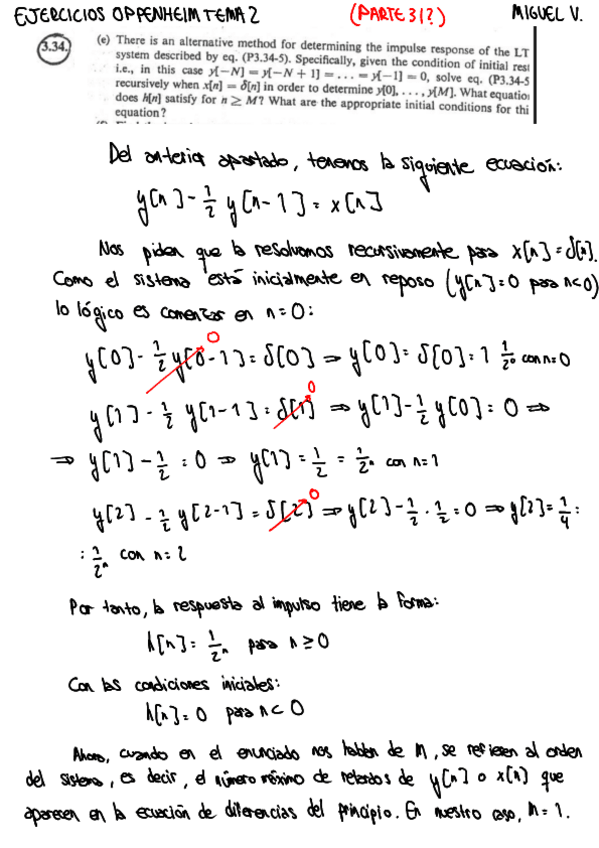 EJERCICIOS OPPENHEIM TEMA 2 (PARTE 3!?) MIGUEL V.
3.34. (e) There is an alternative method for determining the impulse response of the LT
system described by eq. (P3.34-5). Specifically, given the condition of initial rest
i.e., in this case y[-N] = y[-N + 1] = . . . = y[-1] = 0, solve eq. (P3.34-5
recursively when x[n] = δ[n] in order to determine y[0], . . . , y[M]. What equation
does h[n] satisfy for n ≥ M? What are the appropriate initial conditions for thi
equation?
Del anterior apartado, tenemos la siguiente ecuación:
y[n] - 1/2 y[n-1] = x[n]
Nos piden que la resolvamos recursivamente para x[n] = δ[n].
Como el sistema está inicialmente en reposo (y[n] = 0 para n<0)
lo lógico es comenzar en n=0:
y[0] - 1/2 y[0-1] = δ[0] ⇒ y[0] = δ[0] = 1 1/2⁰ con n=0
0
y[1] - 1/2 y[1-1] = δ[1] ⇒ y[1] - 1/2 y[0] = 0 ⇒
0
⇒ y[1] - 1/2 = 0 ⇒ y[1] = 1/2 = 1/2ⁿ con n=1
y[2] - 1/2 y[2-1] = δ[2] ⇒ y[2] - 1/2 · 1/2 = 0 ⇒ y[2] = 1/4 =
0
= 1/2ⁿ con n=2
Por tanto, la respuesta al impulso tiene la forma:
h[n] = 1/2ⁿ para n ≥ 0
Con las condiciones iniciales:
h[n] = 0 para n < 0
Ahora, cuando en el enunciado nos hablan de M, se refieren al orden
del sistema, es decir, el número máximo de retardos de y[n] o x[n] que
aparecen en la ecuación de diferencias del principio. En nuestro caso, M = 1.